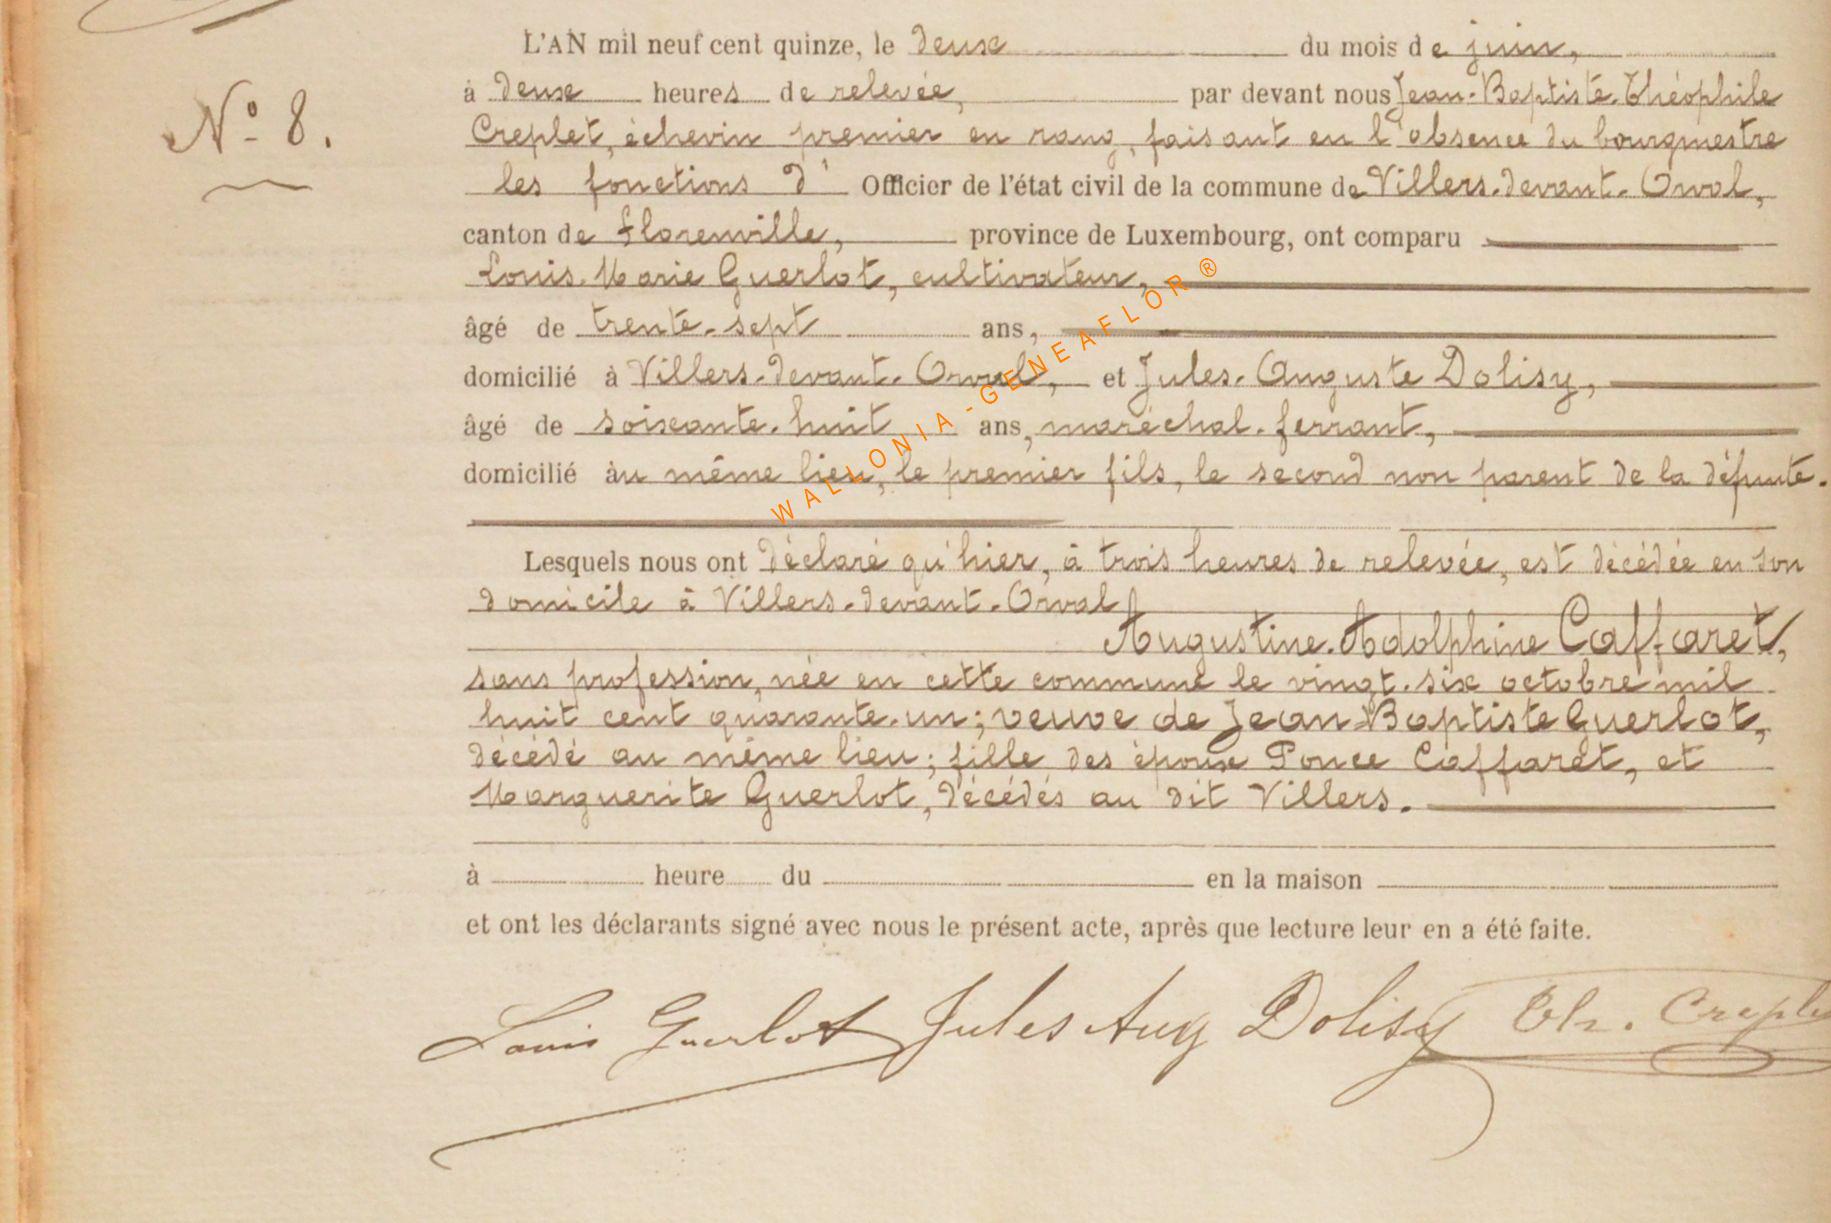 L'AN mil neuf cent quinze, le deux du mois de juin,
N° 8.
à deux heures de relevée, par devant nous Jean-Baptiste-Théophile
Creplet, échevin premier en rang, faisant en l'absence du bourgmestre
les fonctions d' Officier de l'état civil de la commune de Villers-devant-Orval,
canton de Florenville, province de Luxembourg, ont comparu
Louis-Marie Guerlot, cultivateur,
âgé de trente-sept ans,
domicilié à Villers-devant-Orval, et Jules-Auguste Dolisy,
âgé de soixante-huit ans, maréchal-ferrant,
domicilié àu même lieu, le premier fils, le second non parent de la défunte.
WALLONIA-GENEAFLOR ®
Lesquels nous ont déclaré qu'hier, à trois heures de relevée, est décédée en son
domicile à Villers-devant-Orval
Augustine-Adolphine Caffaret,
sans profession, née en cette commune le vingt-six octobre mil
huit cent quarante-un; veuve de Jean-Baptiste Guerlot,
décédé au même lieu; fille des époux Ponce Caffaret, et
Marguerite Guerlot, décédés au dit Villers.
à heure du en la maison
et ont les déclarants signé avec nous le présent acte, après que lecture leur en a été faite.
Louis Guerlot Jules Aug Dolisy Th. Creplet